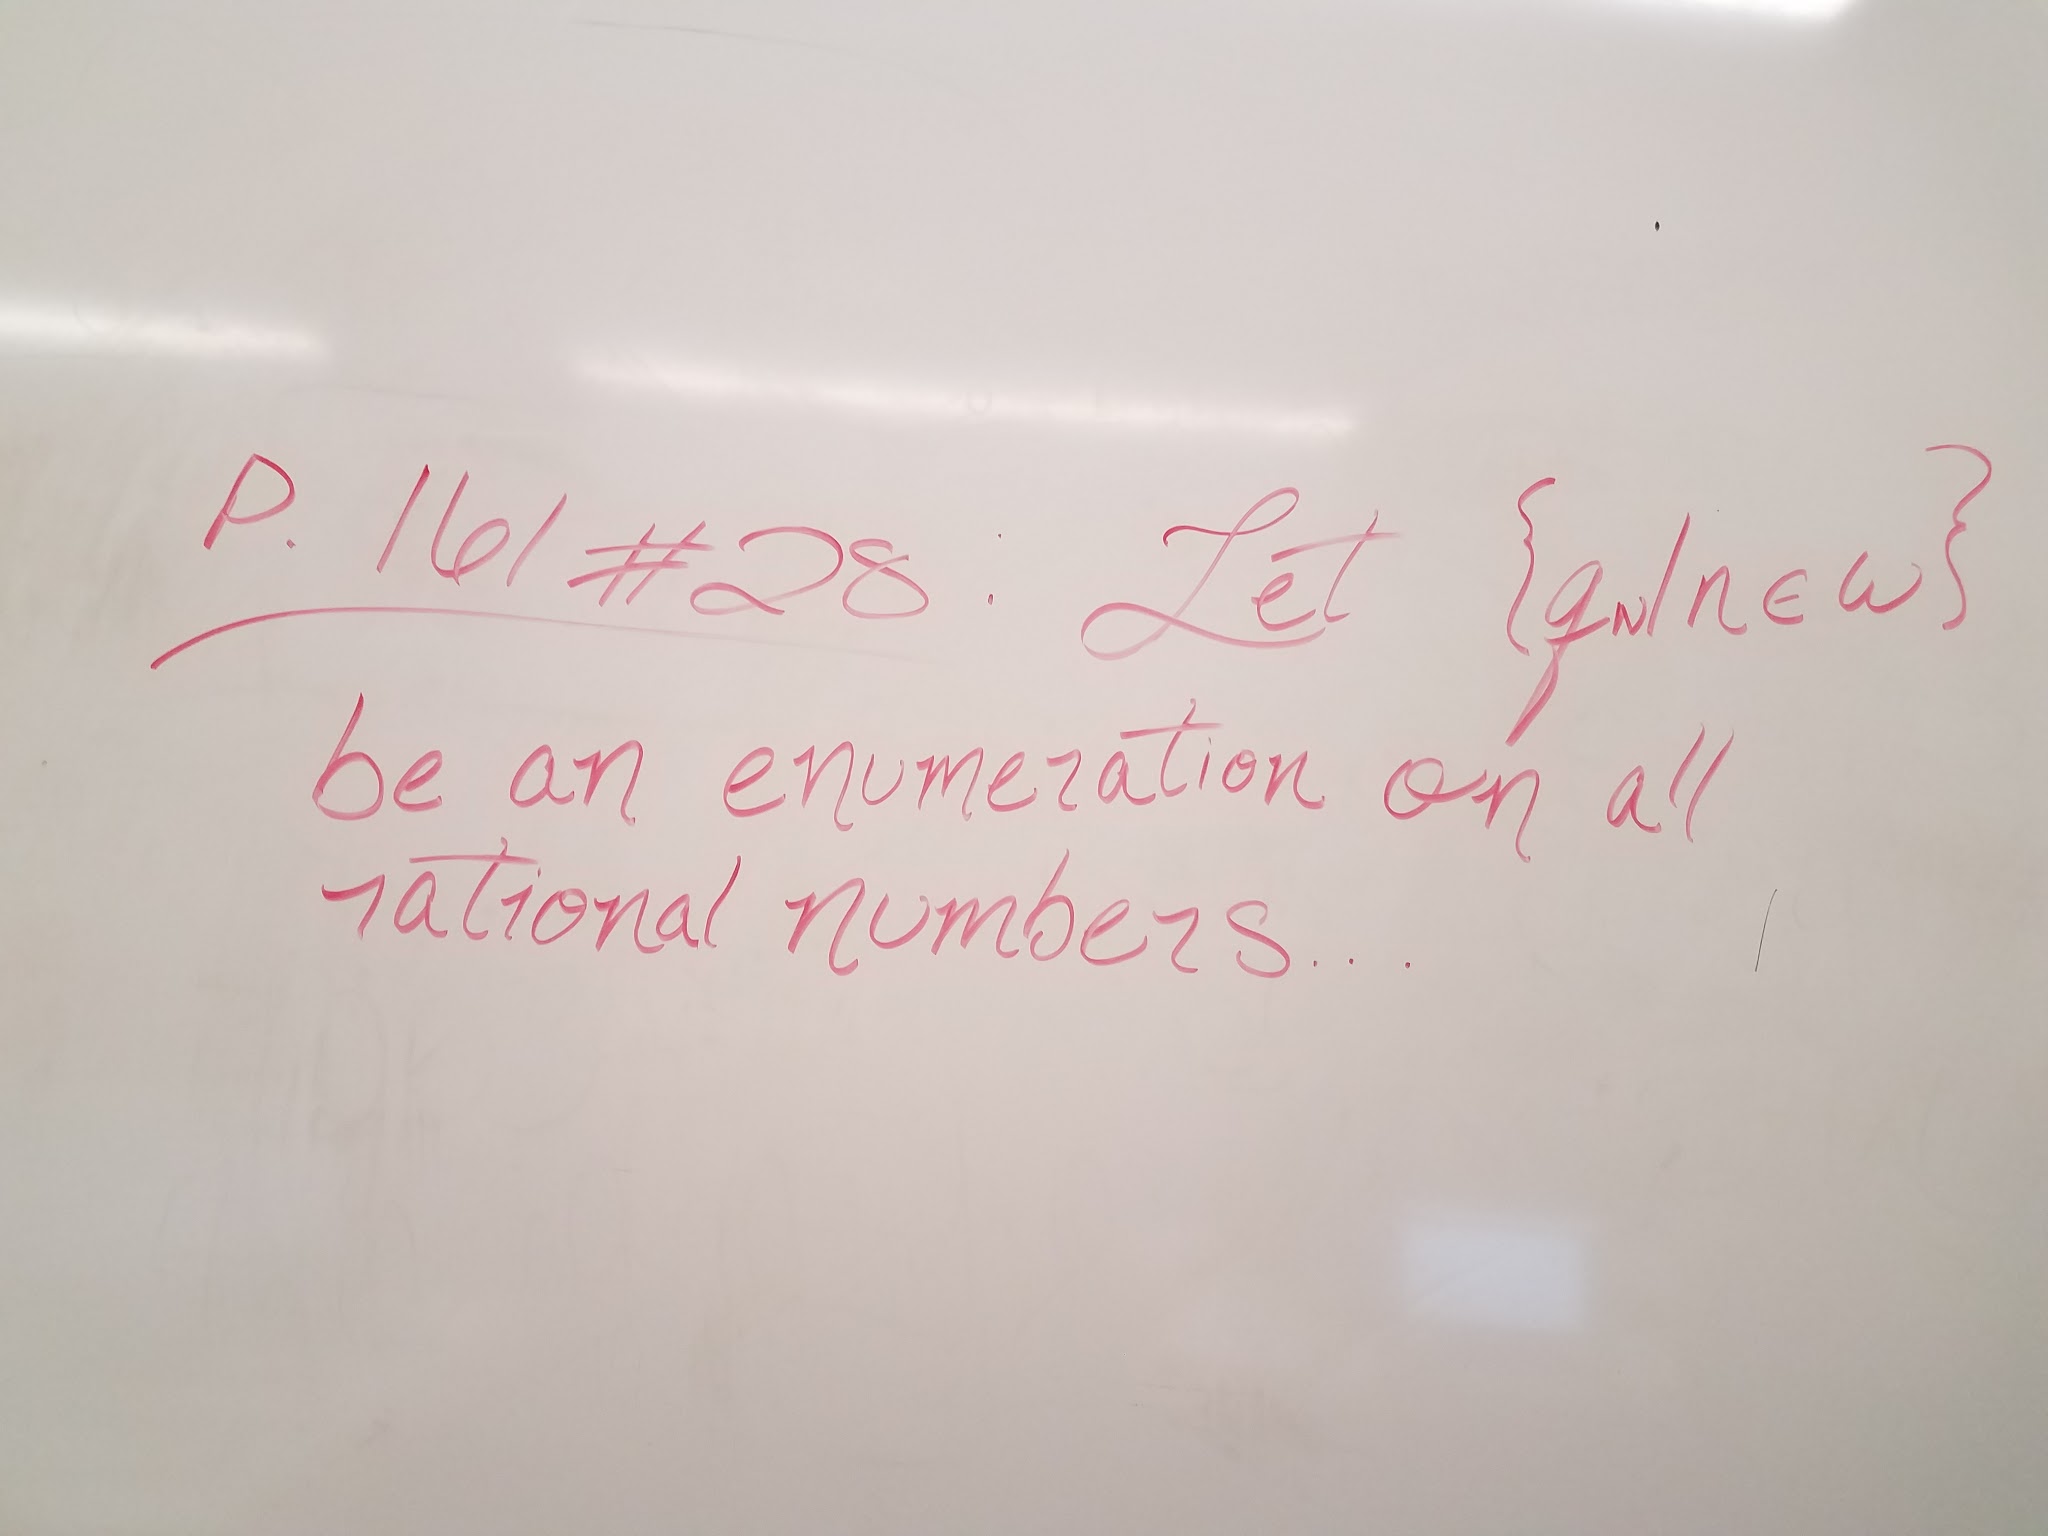 P. 161 #28: Let {qₙ|n∈ω}
be an enumeration on all
rational numbers...